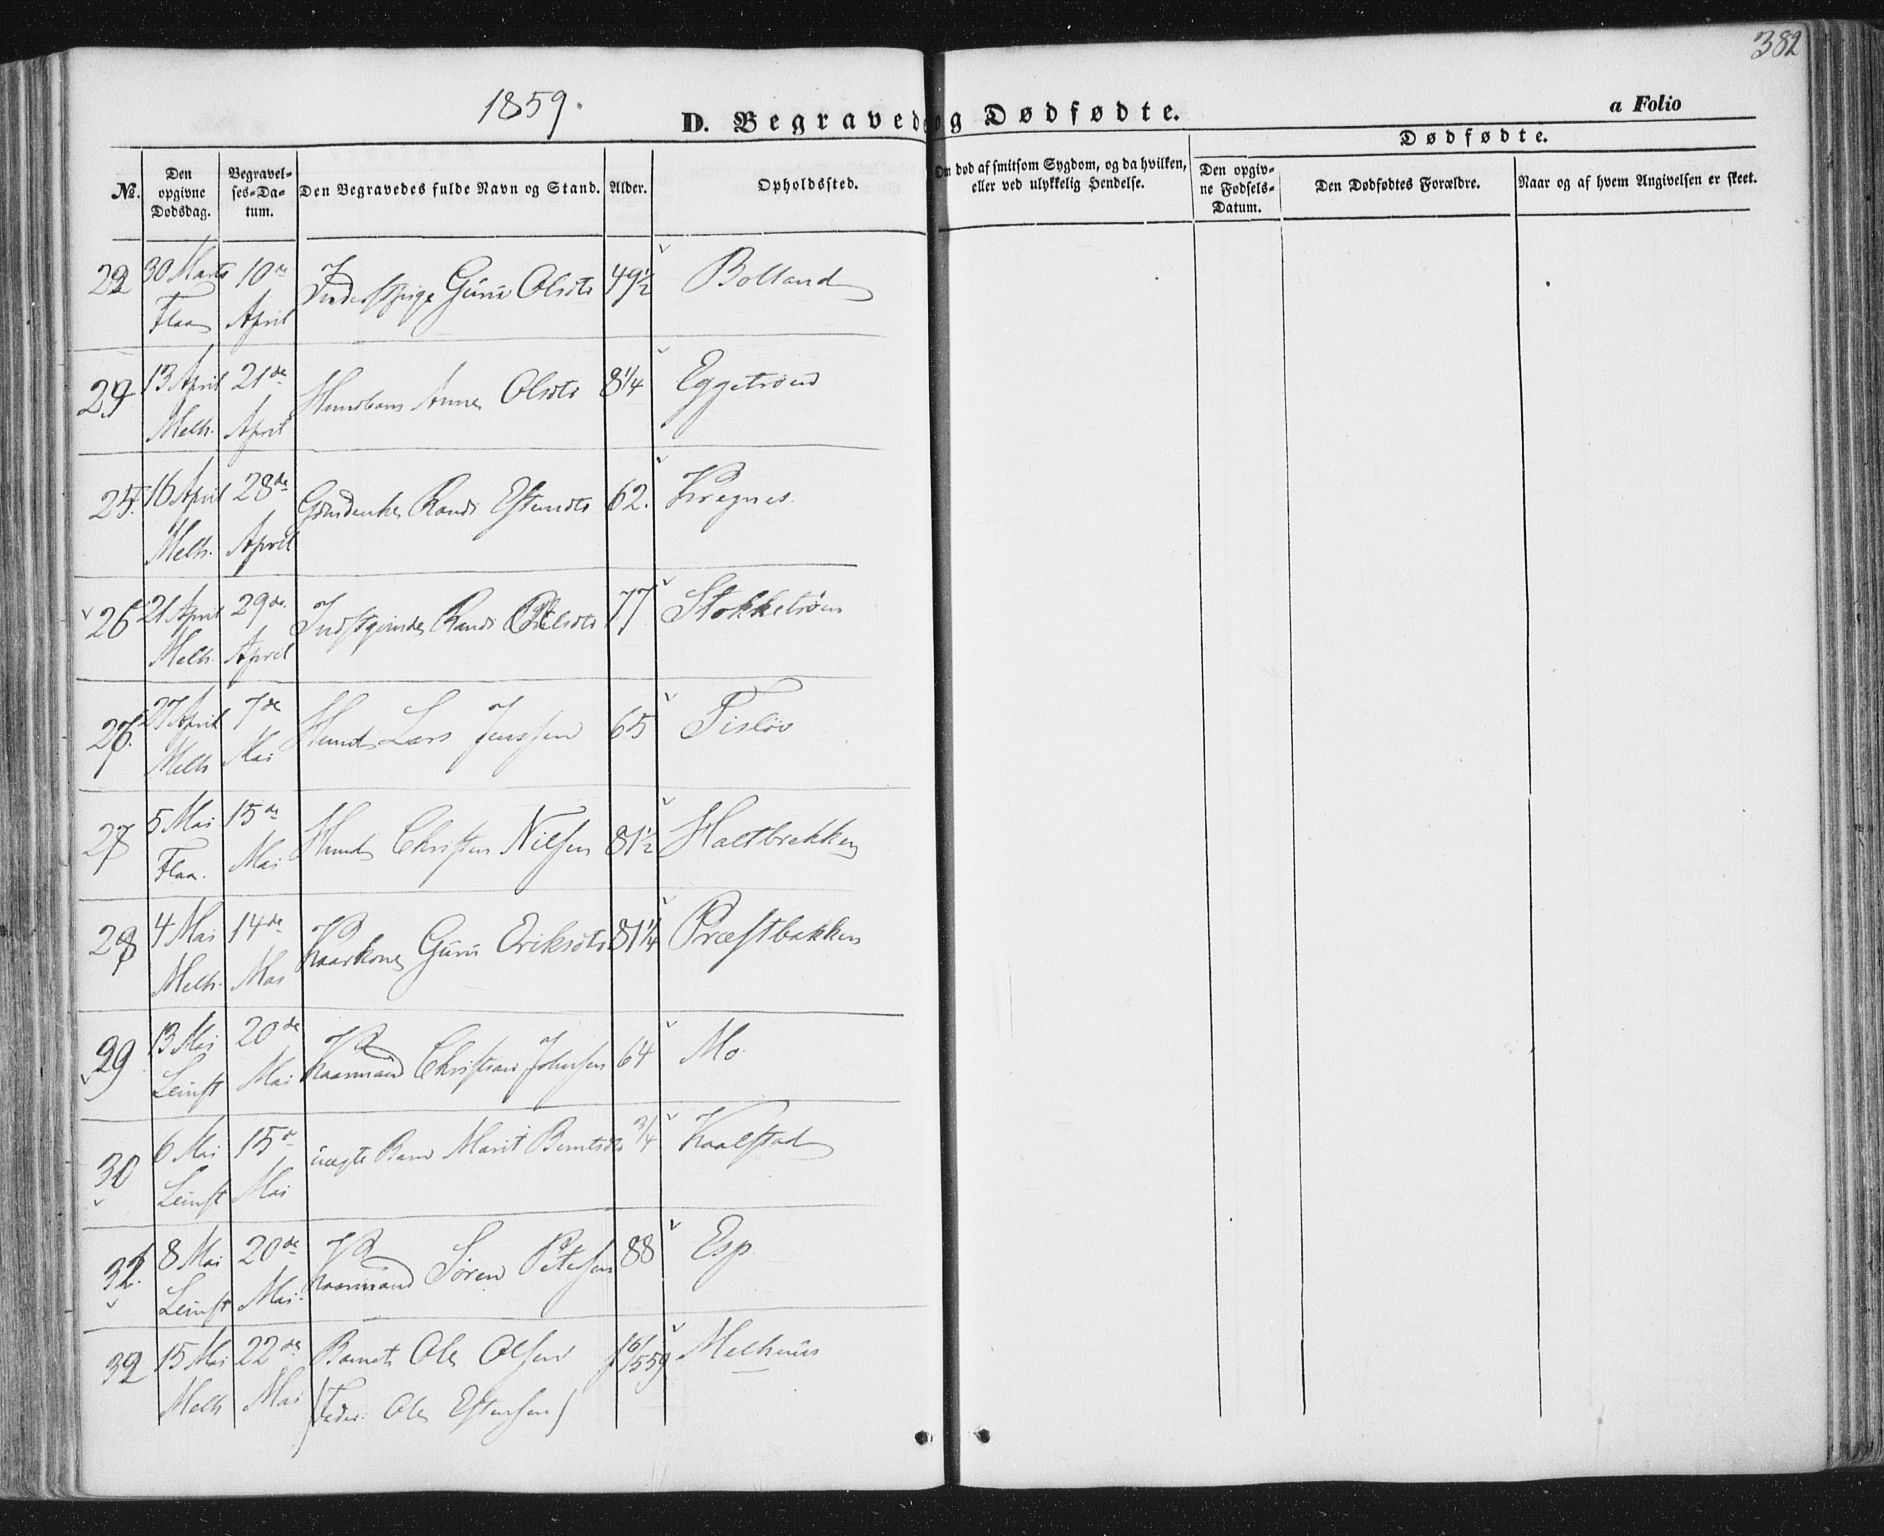 382
1859.
D. Begravede og Dødfødte.
a Folio
Dødfødte.
№.
Den opgivne Dødsdag.
Begravelses-Datum.
Den Begravedes fulde Navn og Stand.
Alder.
Opholdssted.
Om død af smitsom Sygdom, og da hvilken, eller ved ulykkelig Hendelse.
Den opgivne Fødsels-Datum.
Den Dødfødtes Forældre.
Naar og af hvem Angivelsen er skeet.
30 Marts 10de Guru Olsdtr 49½ Bolland
Flaa April
24 13 April 21de Anne Olsdtr 8¼ Eggetrøen
Melh. April
25. 16 April 28de Randi Estensdtr 62. Kregnes
Melh. April
26 21 April 29de Randi 77 Stokketrøen
Melh. April
27 April 7de Lars Jenssen 65
Melh Mai
27 5 Mai 15de Christen Nilsen 81½ Haltbrekken
Flaa. Mai
28 4 Mai 14de Kaarkone Guru Eriksdtr 81¼ Præstbakken
Melh. Mai
29 13 Mai 20de Kaarmand Christian Johnsen 64 Mo.
Leinst Mai
30 6 Mai 15de uægte Barn Marit Berntsdtr ¾ Kaalstad
Leinst Mai
8 Mai 20de Kaarmand Søren Petersen 88 Esp
Leinst Mai.
32 15 Mai 22de Barnet Ole Olsen Melhuus
Melh Mai (Fader: Ole Estensen)